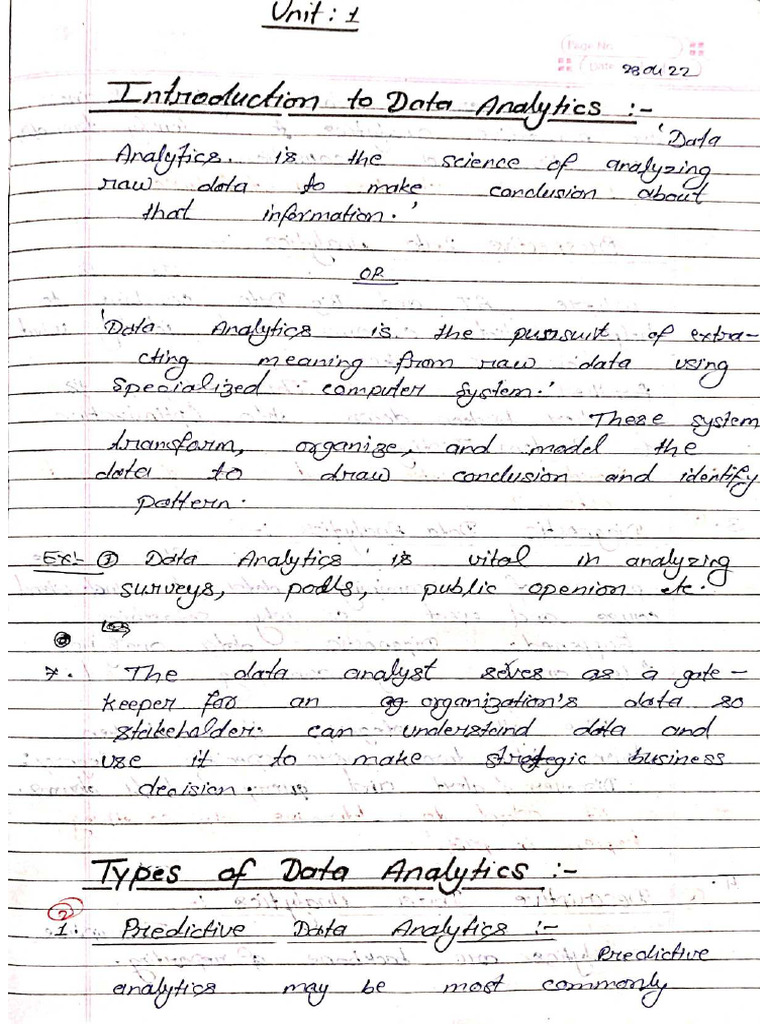 Unit : 1
Page No.
Date 28 04 22
Introduction to Data Analytics :-
'Data
Analytics. is the science of analyzing
raw data to make conclusion about
that information.'
OR
'Data Analytics is the pursuit of extra-
cting meaning from raw data using
specialized computer system.'
These system
transform, organize, and model the
data to draw conclusion and identify
pattern.
Ex:- ① Data Analytics is vital in analyzing
surveys, polls, public openion etc.
*. The data analyst serves as a gate-
keeper for an organization's data so
stakeholder can understand data and
use it to make strategic business
decision.
Types of Data Analytics :-
②
1. Predictive Data Analytics :-
Predictive
analytics may be most commonly